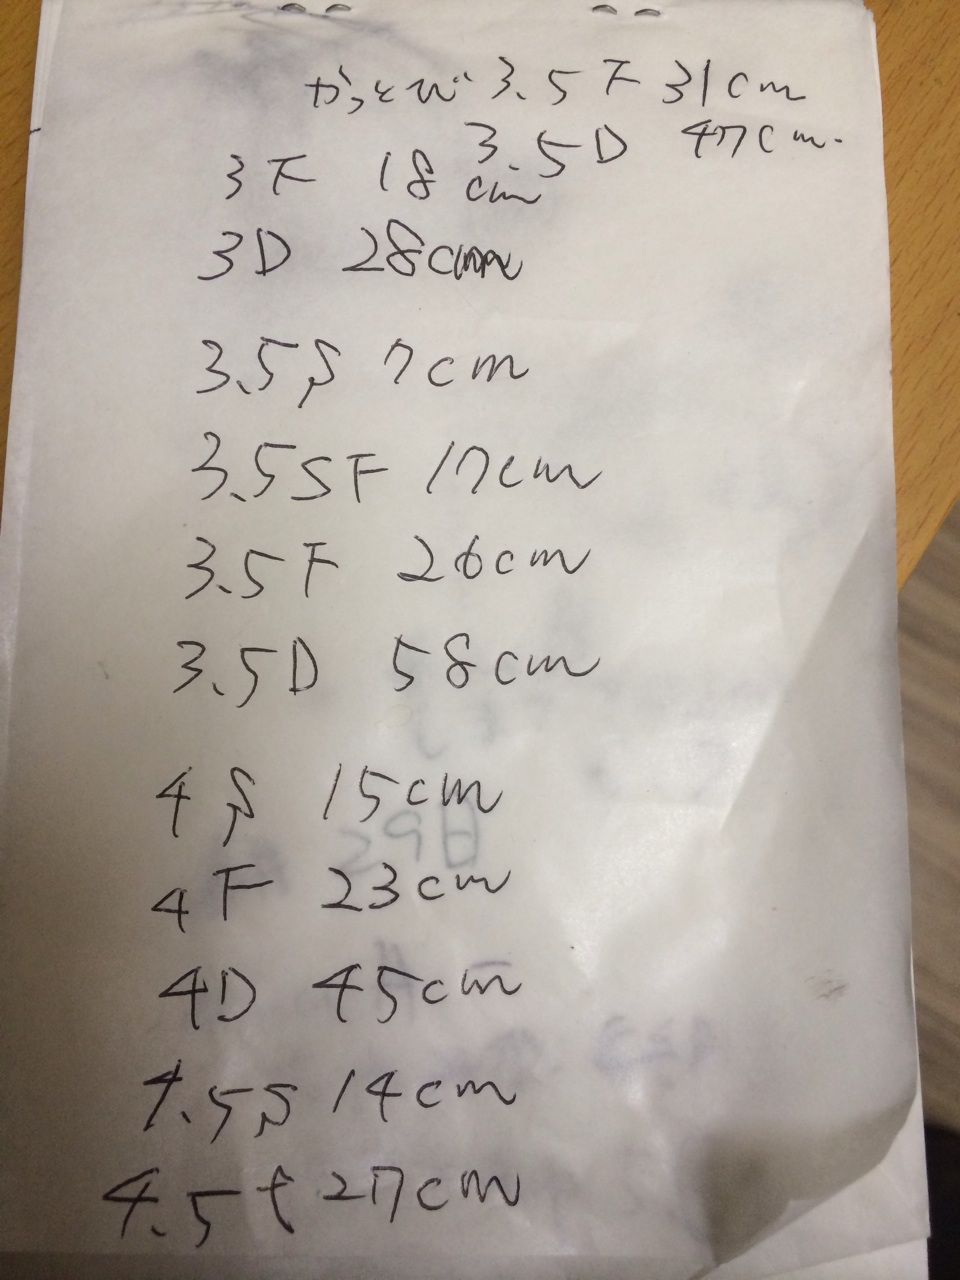 かっとび 3.5F 31cm
3.5D 47cm.
3F 18cm
3D 28cm
3.5S 7cm
3.5SF 17cm
3.5F 26cm
3.5D 58cm
4S 15cm
4F 23cm
4D 45cm
4.5S 14cm
4.5f 27cm